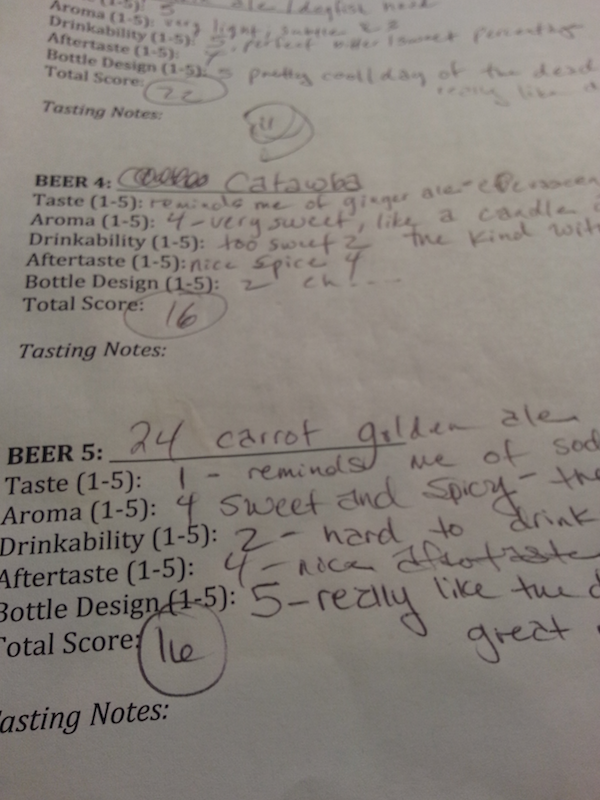 (1-5): 5
Aroma (1-5): very light, subtle
Drinkability (1-5): 5 perfect bitter/sweet percentage
Aftertaste (1-5): 4
Bottle Design (1-5): 5 pretty cool day of the dead
Total Score: 22 really like
Tasting Notes:
BEER 4: Catawba
Taste (1-5): reminds me of ginger ale
Aroma (1-5): 4 - very sweet, like a candle
Drinkability (1-5): too sweet 2 the kind with
Aftertaste (1-5): nice spice 4
Bottle Design (1-5): 2
Total Score: 16
Tasting Notes:
BEER 5: 24 carrot golden ale
Taste (1-5): 1 - reminds me of
Aroma (1-5): 4 sweet and spicy - the
Drinkability (1-5): 2 - hard to drink
Aftertaste (1-5): 4 - nice aftertaste
Bottle Design (1-5): 5 - really like the
Total Score: 16 great
Tasting Notes: